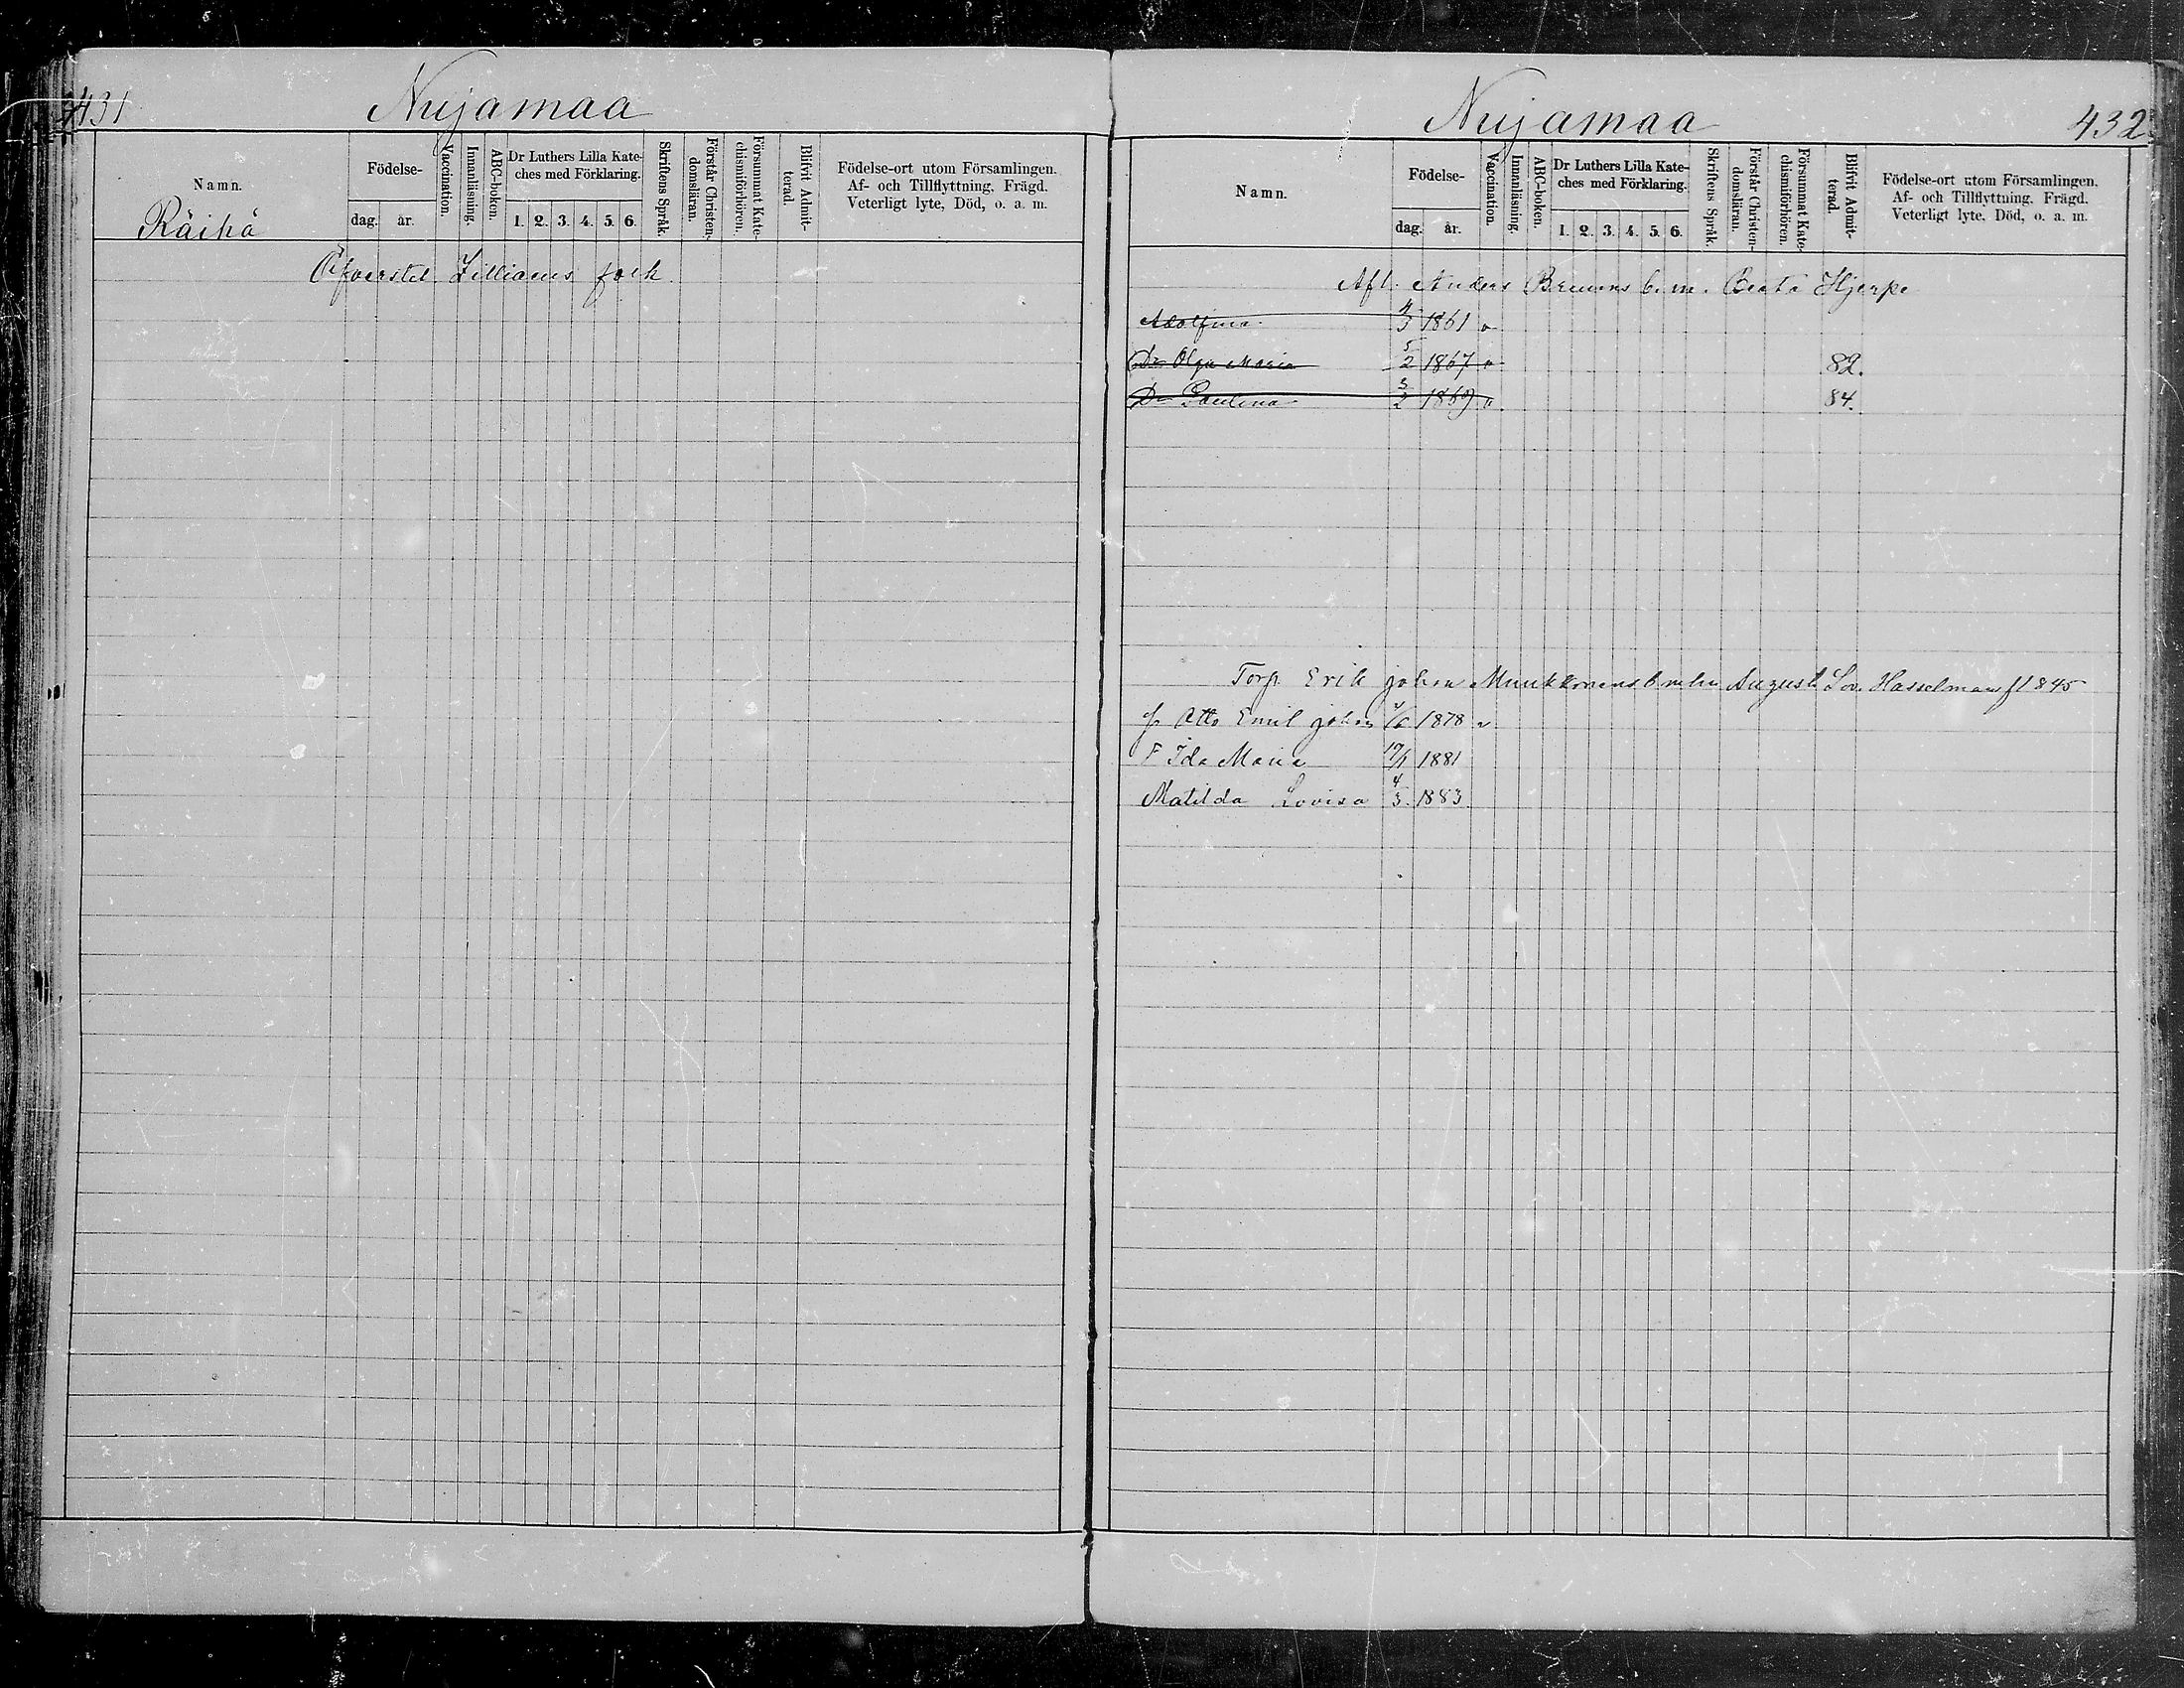 431
Nujamaa
Namn.
Födelse-
dag. år.
Vaccination.
Innanläsning.
ABC-boken.
Dr Luthers Lilla Kate-
ches med Förklaring.
1. 2. 3. 4. 5. 6.
Skriftens Språk.
Förstår Christen-
domsläran.
Försummat Kate-
chismiförhören.
Blifvit Admit-
terad.
Födelse-ort utom Församlingen.
Af- och Tillflyttning. Frägd.
Veterligt lyte, Död, o. a. m.
Räihä
Öfverstel Zilliacus folk
Nujamaa
432
Namn.
Födelse-
dag. år.
Vaccination.
Innanläsning.
ABC-boken.
Dr Luthers Lilla Kate-
ches med Förklaring.
1. 2. 3. 4. 5. 6.
Skriftens Språk.
Förstår Christen-
domsläran.
Försummat Kate-
chismiförhören.
Blifvit Admit-
terad.
Födelse-ort utom Församlingen.
Af- och Tillflyttning. Frägd.
Veterligt lyte, Död, o. a. m.
Afl. Anders b. m. Beata Hjerpe
Adolfina 4/3 1861
Dr Olga Maria 5/2 1867 82.
Dr Paulina 3/2 1869 84.
Torp Erik Johan August Lov. Hasselmans f1845
Otto Emil Johan 1878
F Ida Maria 19/1 1881
Matilda Lovisa 4/3 1883